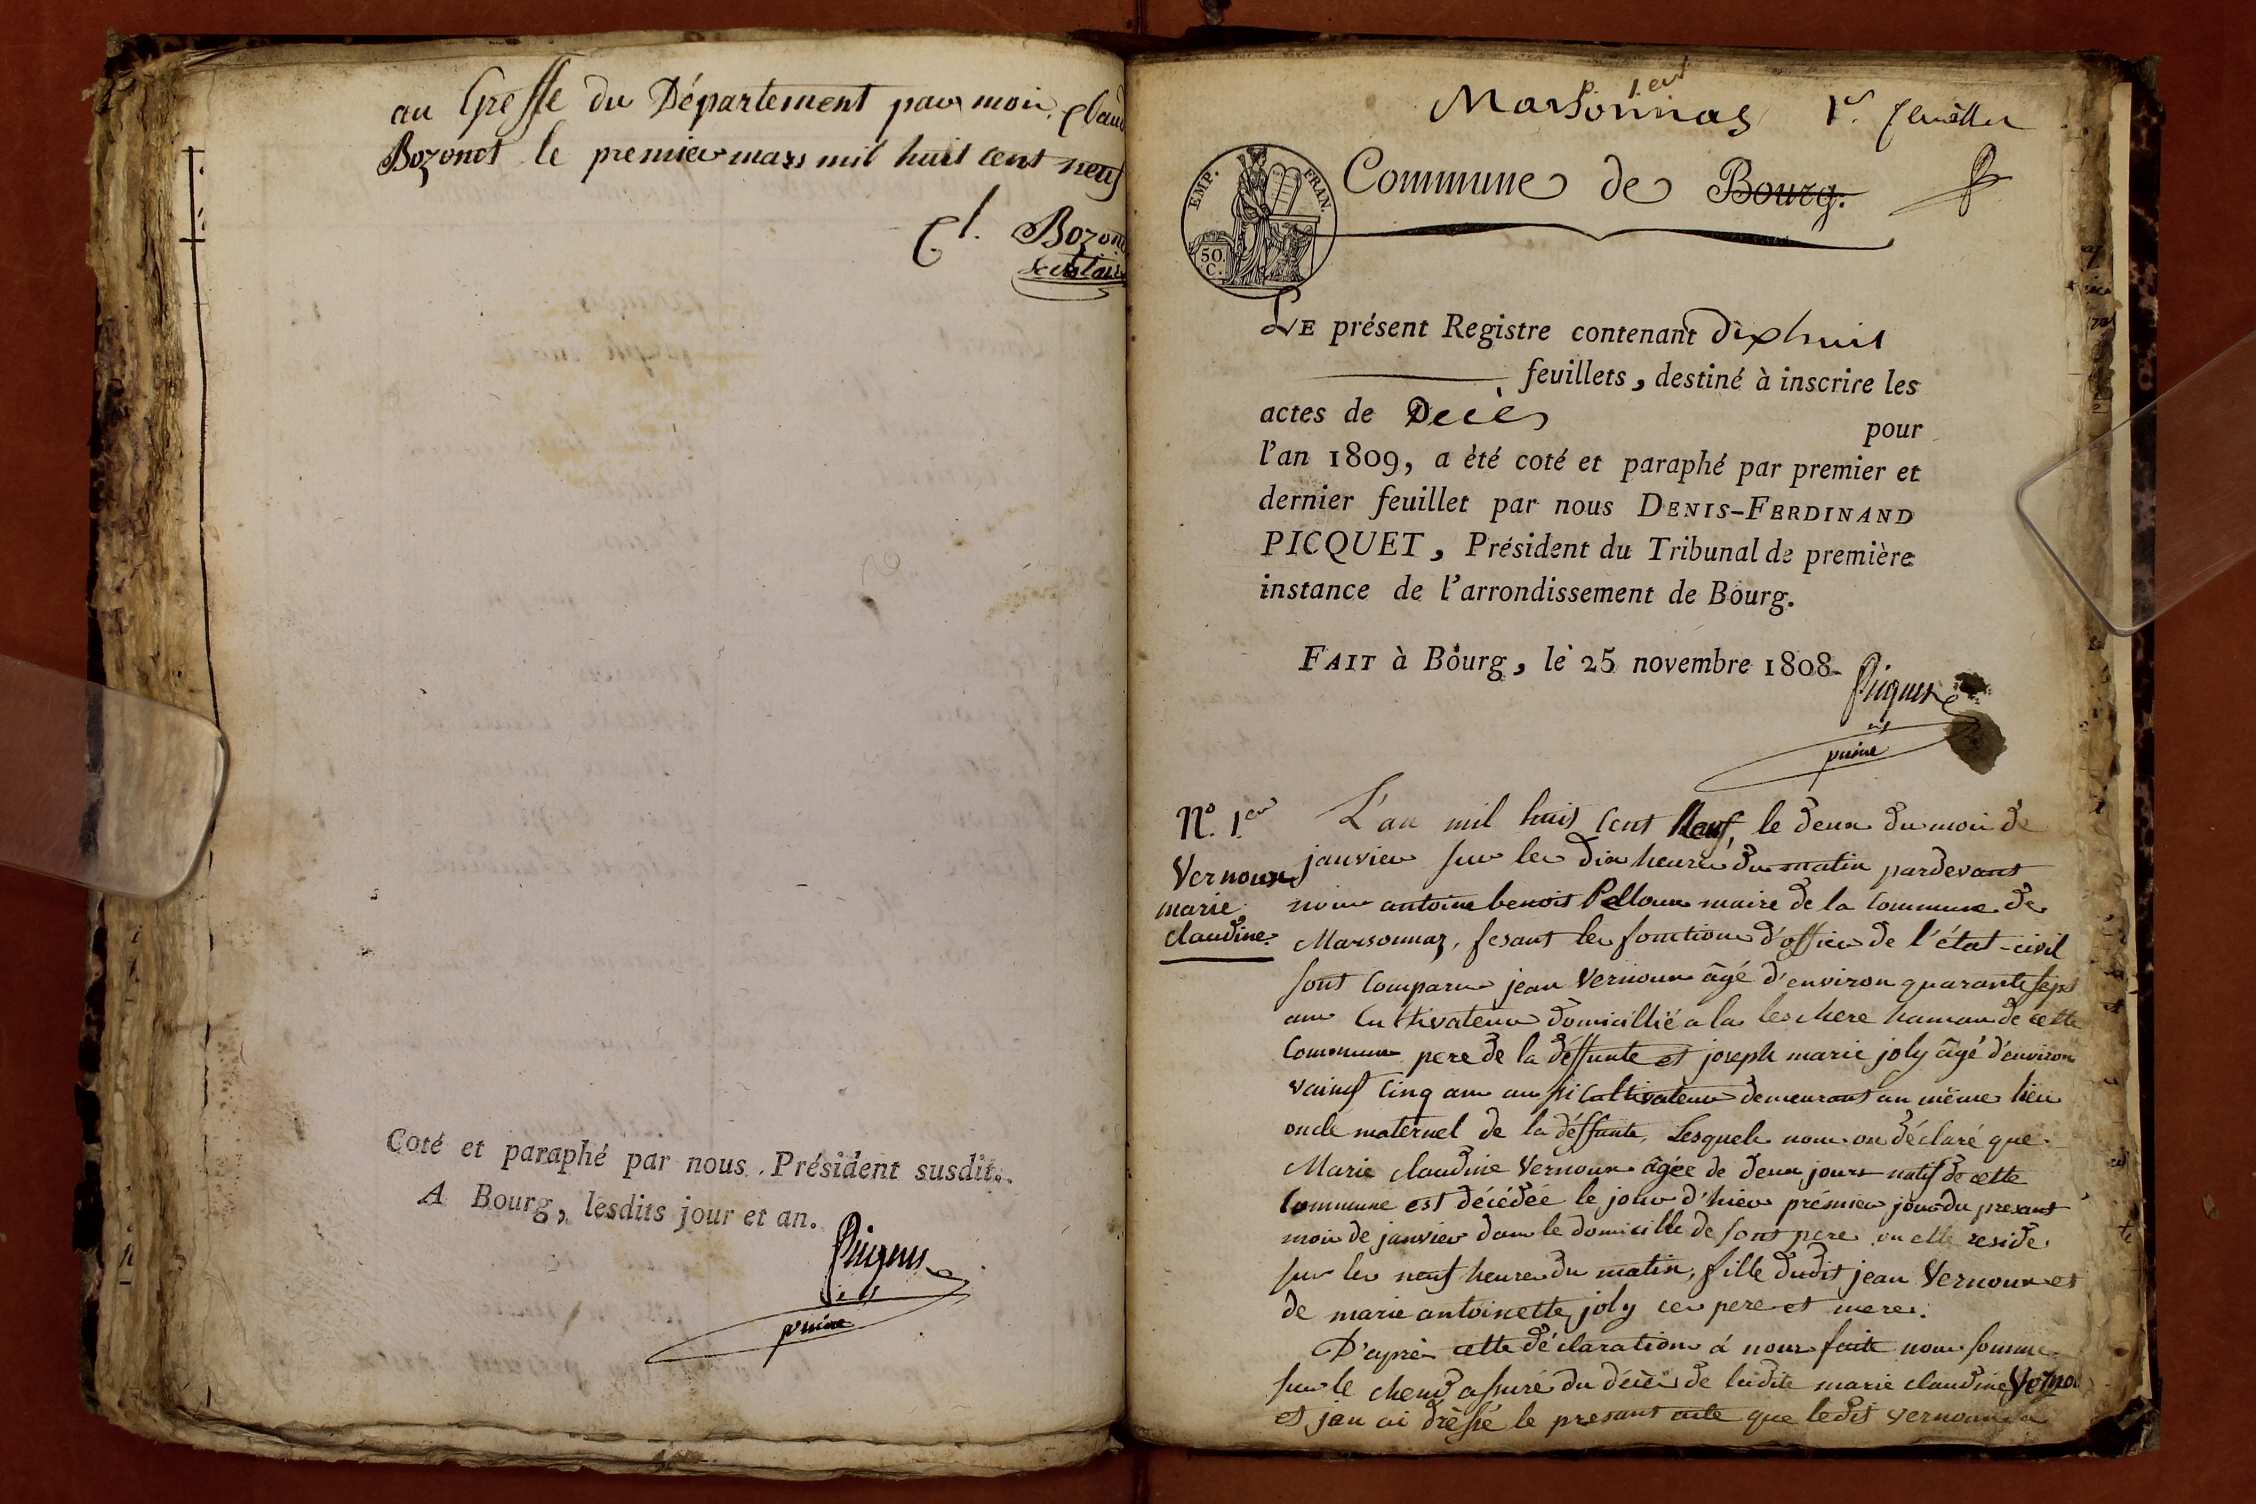 au Greffe du Département par moi Claud
Bozonet le premier mars mil huit cent neuf
Cl. Bozon
Secrétaire
Coté et paraphé par nous Président susdit.
A Bourg, lesdits jour et an.
Picquet
puiné
1er
Marsonnas 1er feuillet
Commune de Bourg.
EMP. FRAN.
50.
C.
LE présent Registre contenant dixhuit
feuillets, destiné à inscrire les
actes de Décès
pour
l'an 1809, a été coté et paraphé par premier et
dernier feuillet par nous DENIS-FERDINAND
PICQUET, Président du Tribunal de première
instance de l'arrondissement de Bourg.
FAIT à Bourg, le 25 novembre 1808.
Picquet
puiné
N.° 1er
Vernoux
marie
claudine.
L'an mil huit cent Neuf, le deux du mois de
janvier sur les dix heures du matin pardevant
nous antoine benoit Pelloux maire de la commune de
Marsonnaz, fesant les fonctions d'officier de l'état-civil
sont comparus jean Vernoux âgé d'environ quarante sept
ans Cultivateur domicillié a la leschere hamau de cette
Commune pere de la déffunte et joseph marie joly âgé d'environ
vaint cinq ans aussi cultivateur demeurant au même lieu
oncle maternel de la déffunte, Lesquels nous on déclaré que
Marie claudine Vernoux âgée de deux jours natif de cette
Commune est décédée le jour d'hier prémier jour du presant
mois de janvier dans le domicille de sont pere ou elle reside
sur les neuf heures du matin, fille dudit jean Vernoux et
de marie antoinette joly ces pere et mere.
D'après cette déclaration à nous faite nous somme
sur le chemp assuré du décès de ladite marie claudine Verno
et jen ai drèssé le presant acte que ledit vernoux